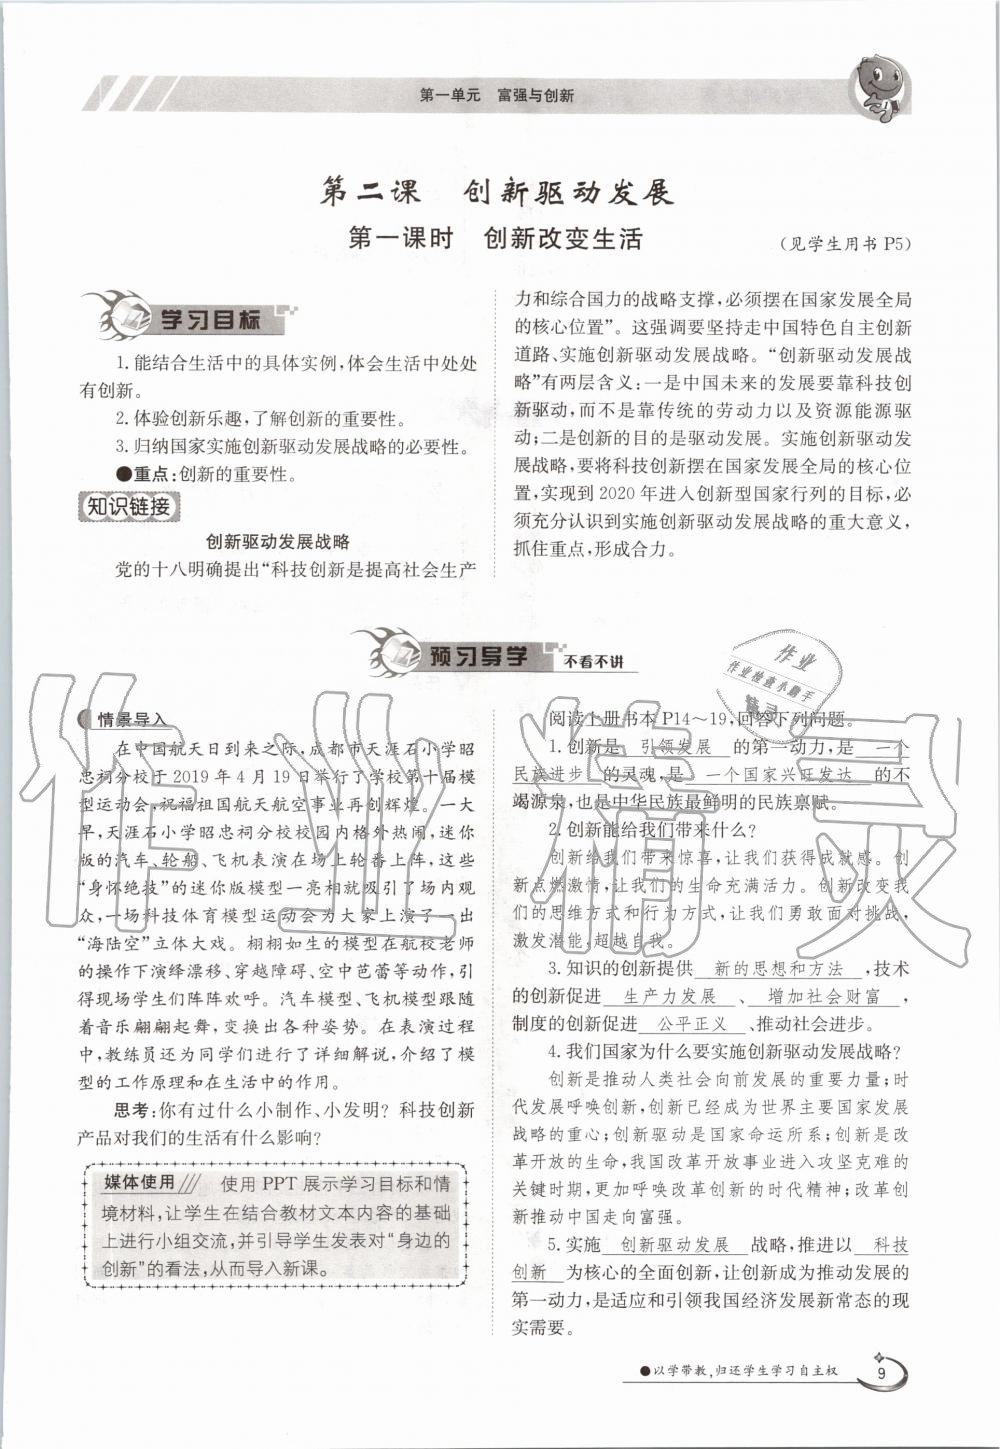 第一单元 富强与创新
第二课 创新驱动发展
第一课时 创新改变生活
(见学生用书 P5)
学习目标
1.能结合生活中的具体实例,体会生活中处处
有创新。
2.体验创新乐趣,了解创新的重要性。
3.归纳国家实施创新驱动发展战略的必要性。
●重点:创新的重要性。
知识链接
创新驱动发展战略
党的十八明确提出“科技创新是提高社会生产
力和综合国力的战略支撑,必须摆在国家发展全局
的核心位置”。这强调要坚持走中国特色自主创新
道路、实施创新驱动发展战略。“创新驱动发展战
略”有两层含义:一是中国未来的发展要靠科技创
新驱动,而不是靠传统的劳动力以及资源能源驱
动;二是创新的目的是驱动发展。实施创新驱动发
展战略,要将科技创新摆在国家发展全局的核心位
置,实现到 2020 年进入创新型国家行列的目标,必
须充分认识到实施创新驱动发展战略的重大意义,
抓住重点,形成合力。
预习导学 不看不讲
情景导入
在中国航天日到来之际,成都市天涯石小学昭
忠祠分校于 2019 年 4 月 19 日举行了学校第十届模
型运动会,祝福祖国航天航空事业再创辉煌。一大
早,天涯石小学昭忠祠分校校园内格外热闹,迷你
版的汽车、轮船、飞机表演在场上轮番上阵,这些
“身怀绝技”的迷你版模型一亮相就吸引了场内观
众,一场科技体育模型运动会为大家上演了一出
“海陆空”立体大戏。栩栩如生的模型在航校老师
的操作下演绎漂移、穿越障碍、空中芭蕾等动作,引
得现场学生们阵阵欢呼。汽车模型、飞机模型跟随
着音乐翩翩起舞,变换出各种姿势。在表演过程
中,教练员还为同学们进行了详细解说,介绍了模
型的工作原理和在生活中的作用。
思考:你有过什么小制作、小发明?科技创新
产品对我们的生活有什么影响?
媒体使用 使用 PPT 展示学习目标和情
境材料,让学生在结合教材文本内容的基础
上进行小组交流,并引导学生发表对“身边的
创新”的看法,从而导入新课。
阅读上册书本 P14～19,回答下列问题。
1.创新是 引领发展 的第一动力,是 一个
民族进步 的灵魂,是 一个国家兴旺发达 的不
竭源泉,也是中华民族最鲜明的民族禀赋。
2.创新能给我们带来什么?
创新给我们带来惊喜,让我们获得成就感。创
新点燃激情,让我们的生命充满活力。创新改变我
们的思维方式和行为方式,让我们勇敢面对挑战,
激发潜能,超越自我。
3.知识的创新提供 新的思想和方法 ,技术
的创新促进 生产力发展 、 增加社会财富 ,
制度的创新促进 公平正义 、推动社会进步。
4.我们国家为什么要实施创新驱动发展战略?
创新是推动人类社会向前发展的重要力量;时
代发展呼唤创新,创新已经成为世界主要国家发展
战略的重心;创新驱动是国家命运所系;创新是改
革开放的生命,我国改革开放事业进入攻坚克难的
关键时期,更加呼唤改革创新的时代精神;改革创
新推动中国走向富强。
5.实施 创新驱动发展 战略,推进以 科技
创新 为核心的全面创新,让创新成为推动发展的
第一动力,是适应和引领我国经济发展新常态的现
实需要。
●以学带教,归还学生学习自主权
9
作业
作业检查小助手
精灵
作业精灵